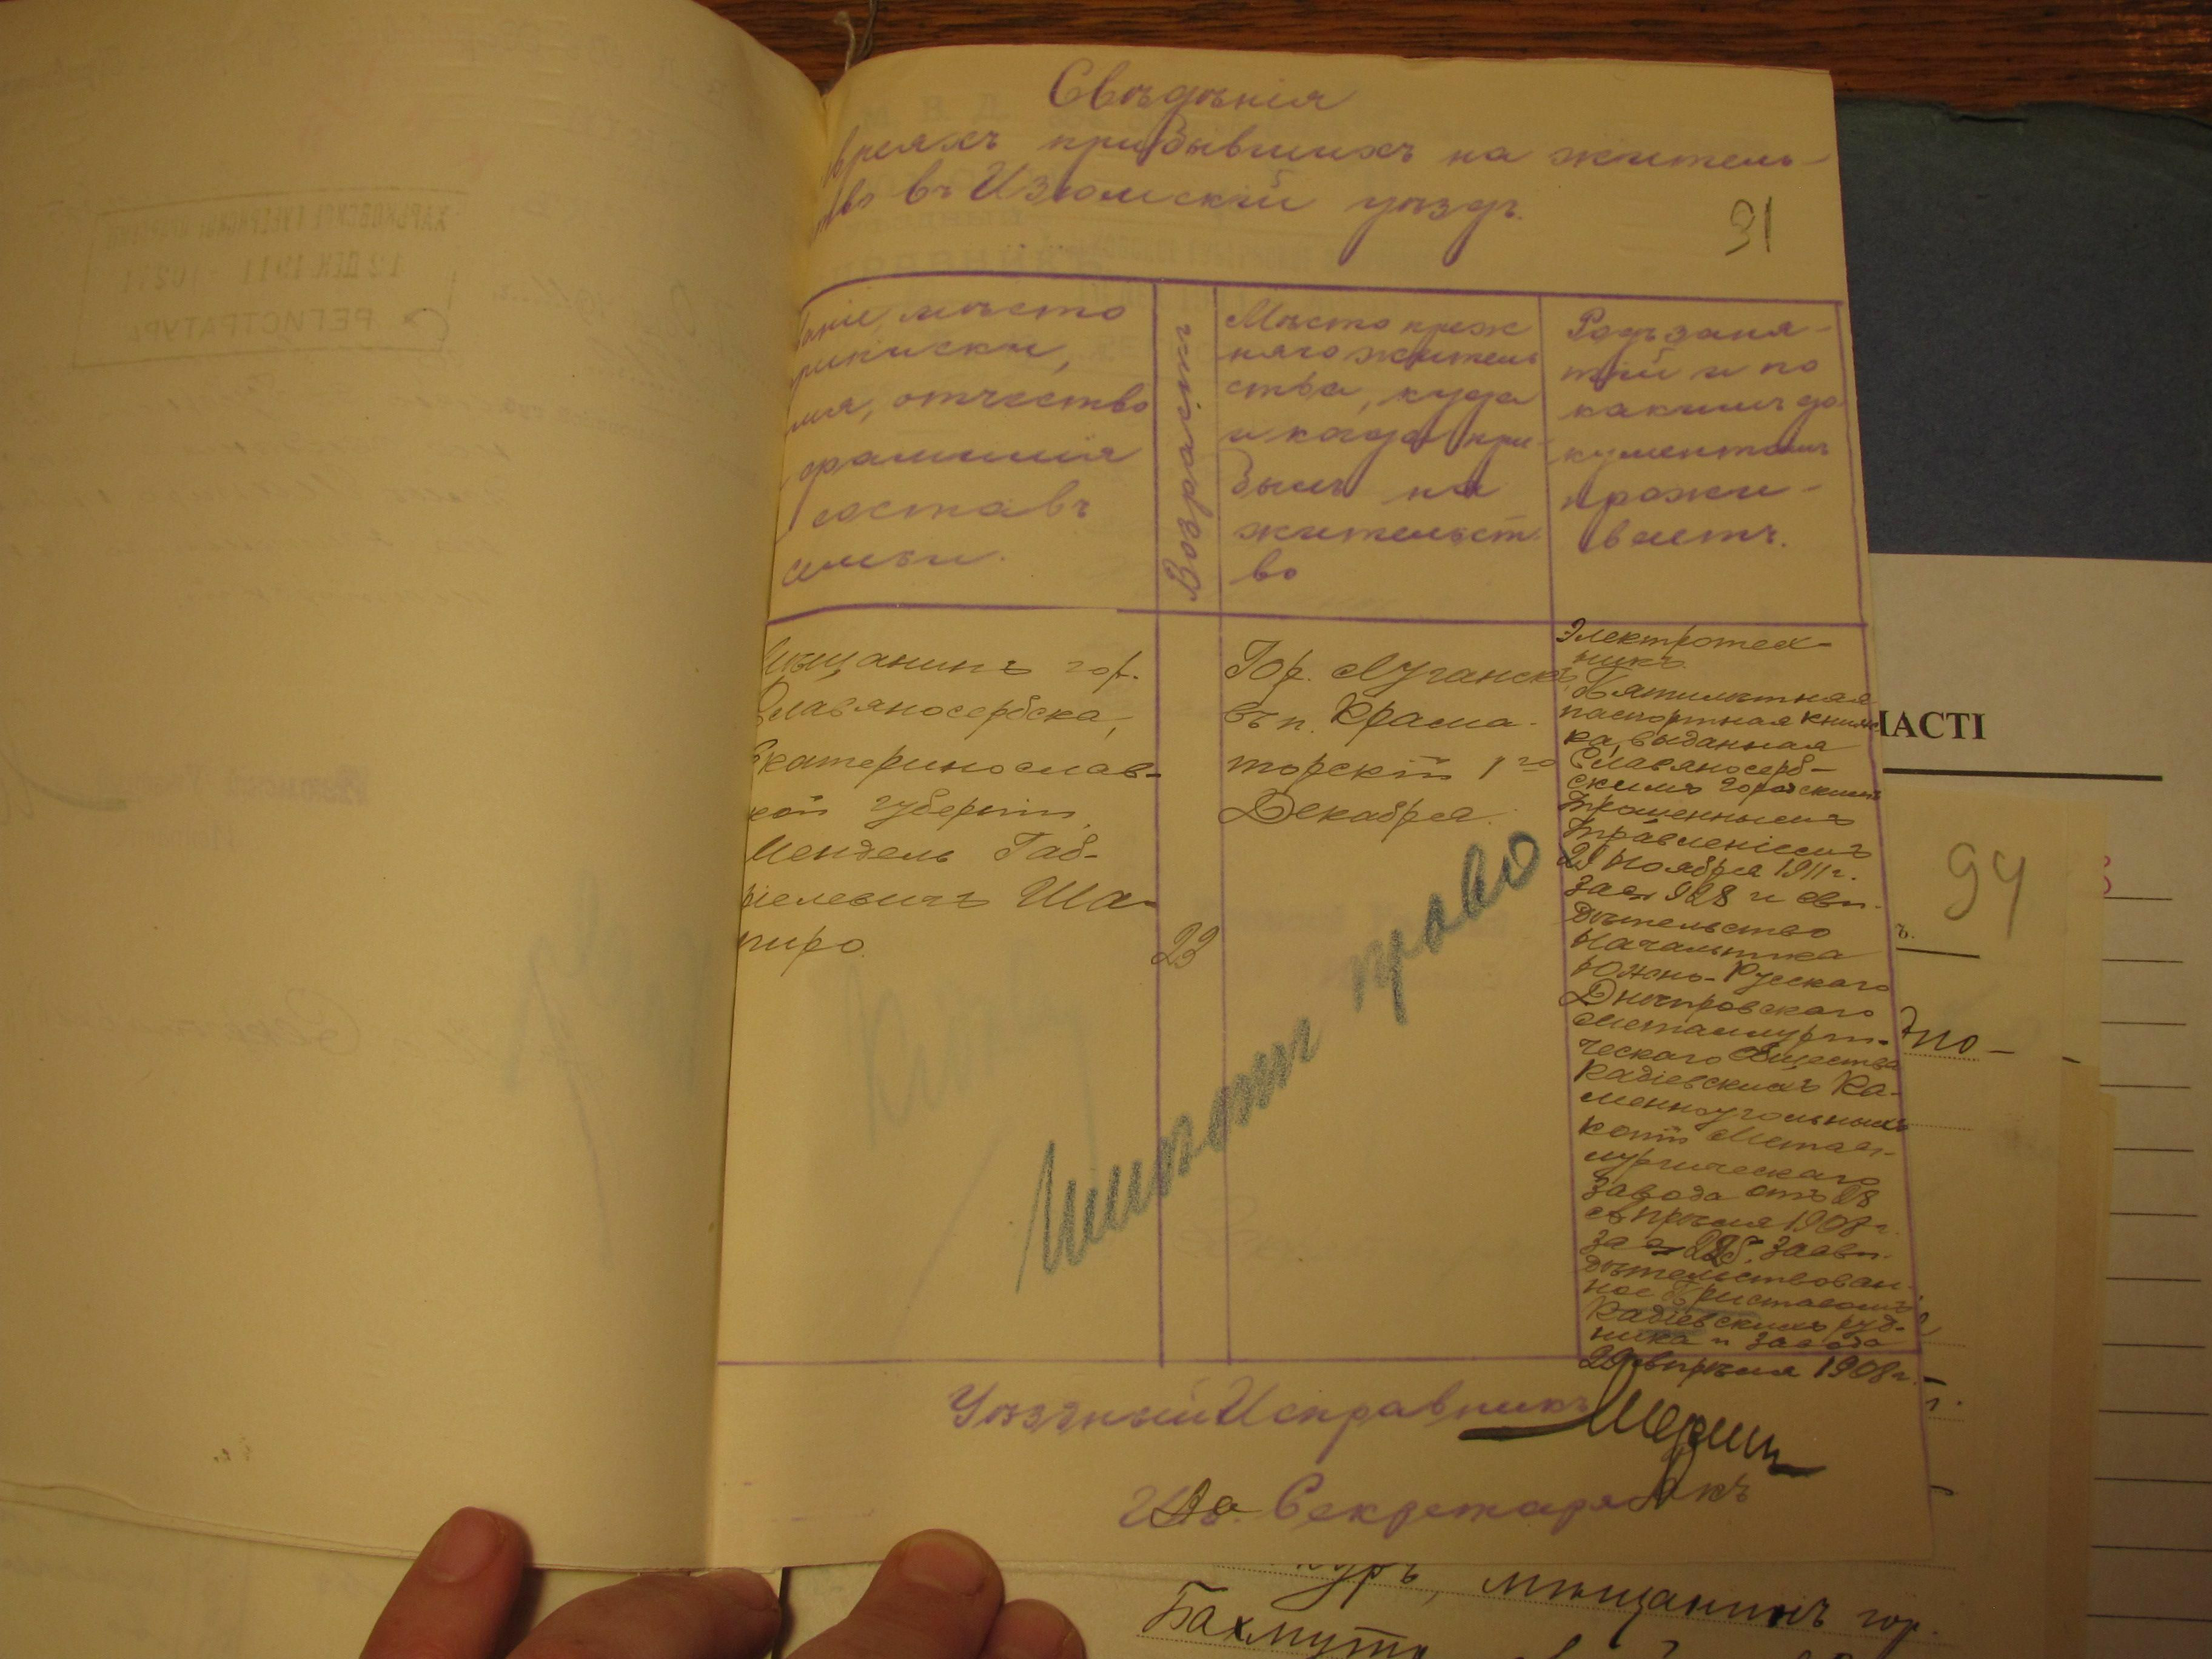 Свѣдѣнія
евреяхъ прибывшихъ на житель-
ство въ Изюмскій уѣздъ.
91
званіе, мѣсто
приписки,
имя, отчество
фамилія
составъ
семьи.
Возрастъ
Мѣсто преж
няго житель
ства, куда
и когда при-
былъ на
жительст
во
Родъ заня-
тій и по
какимъ до
кументамъ
прожи-
ваетъ.
Мѣщанинъ гор.
Славяносербска,
Екатеринослав-
кой губерніи
Мендель Габ-
ріелевичъ Ша-
пиро.
23
Гор. Луганскъ,
въ п. Крама-
торскій 1го
Декабря.
Электротех-
никъ.
Пятилѣтная
паспортная книж-
ка, выданная
Славяносерб-
скимъ городскимъ
Управленіемъ
29 Ноября 1911 г.
за № 928 и сви-
дѣтельство
Начальника
Южно-Русскаго
Днѣпровскаго
Металлурги-
ческаго Общества
Кадіевскихъ Ка-
менноугольныхъ
копій Метал-
лургическаго
Завода отъ 28
Апрѣля 1908 г.
за № 225, засви-
дѣтельствован-
ное Приставомъ
Кадіевскихъ руд-
ника и завода
29 Апрѣля 1908 г.
Имѣютъ право
Уѣздный Исправникъ
И.д. Секретаря
ХАРЬКОВСКОЕ ГУБЕРНСКОЕ ПРАВЛЕНІЕ
12 ДЕК. 1911
РЕГИСТРАТУРА
ЛАСТІ
94
ъ.
дно-
мѣщанинъ гор.
Бахмута